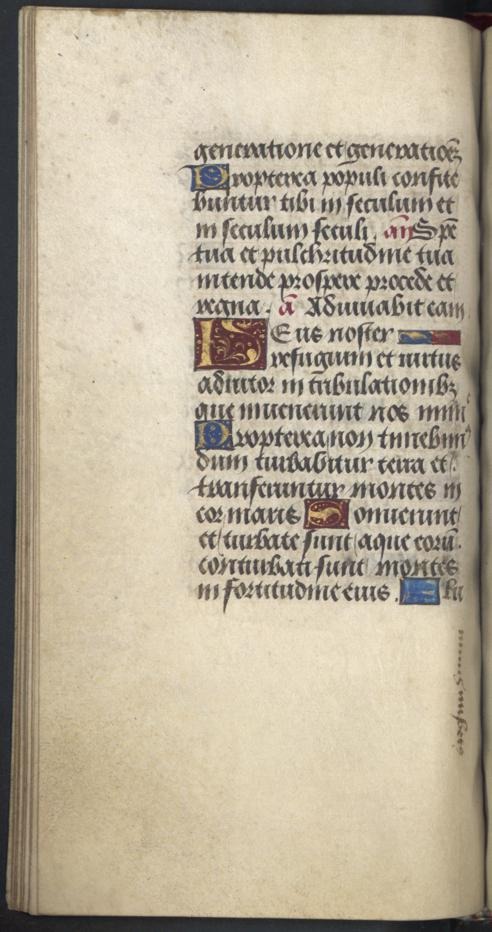 generatione et generatioē
Propterea populi confite
buntur tibi in seculum et
in seculum seculi. añ Spē
tua et pulchritudine tua
intende prospere procede et
regna. a Adiuuabit eam
DEus noster
refugium et uirtus
adiutor in tribulationibꝫ
que inuenerunt nos nimis
Propterea non timebim᷒
dum turbabitur terra et
transferuntur montes in
cor maris Sonuerunt
et turbate sunt aque eorū.
conturbati sunt montes
in fortitudine eius. Flu
minis impetus